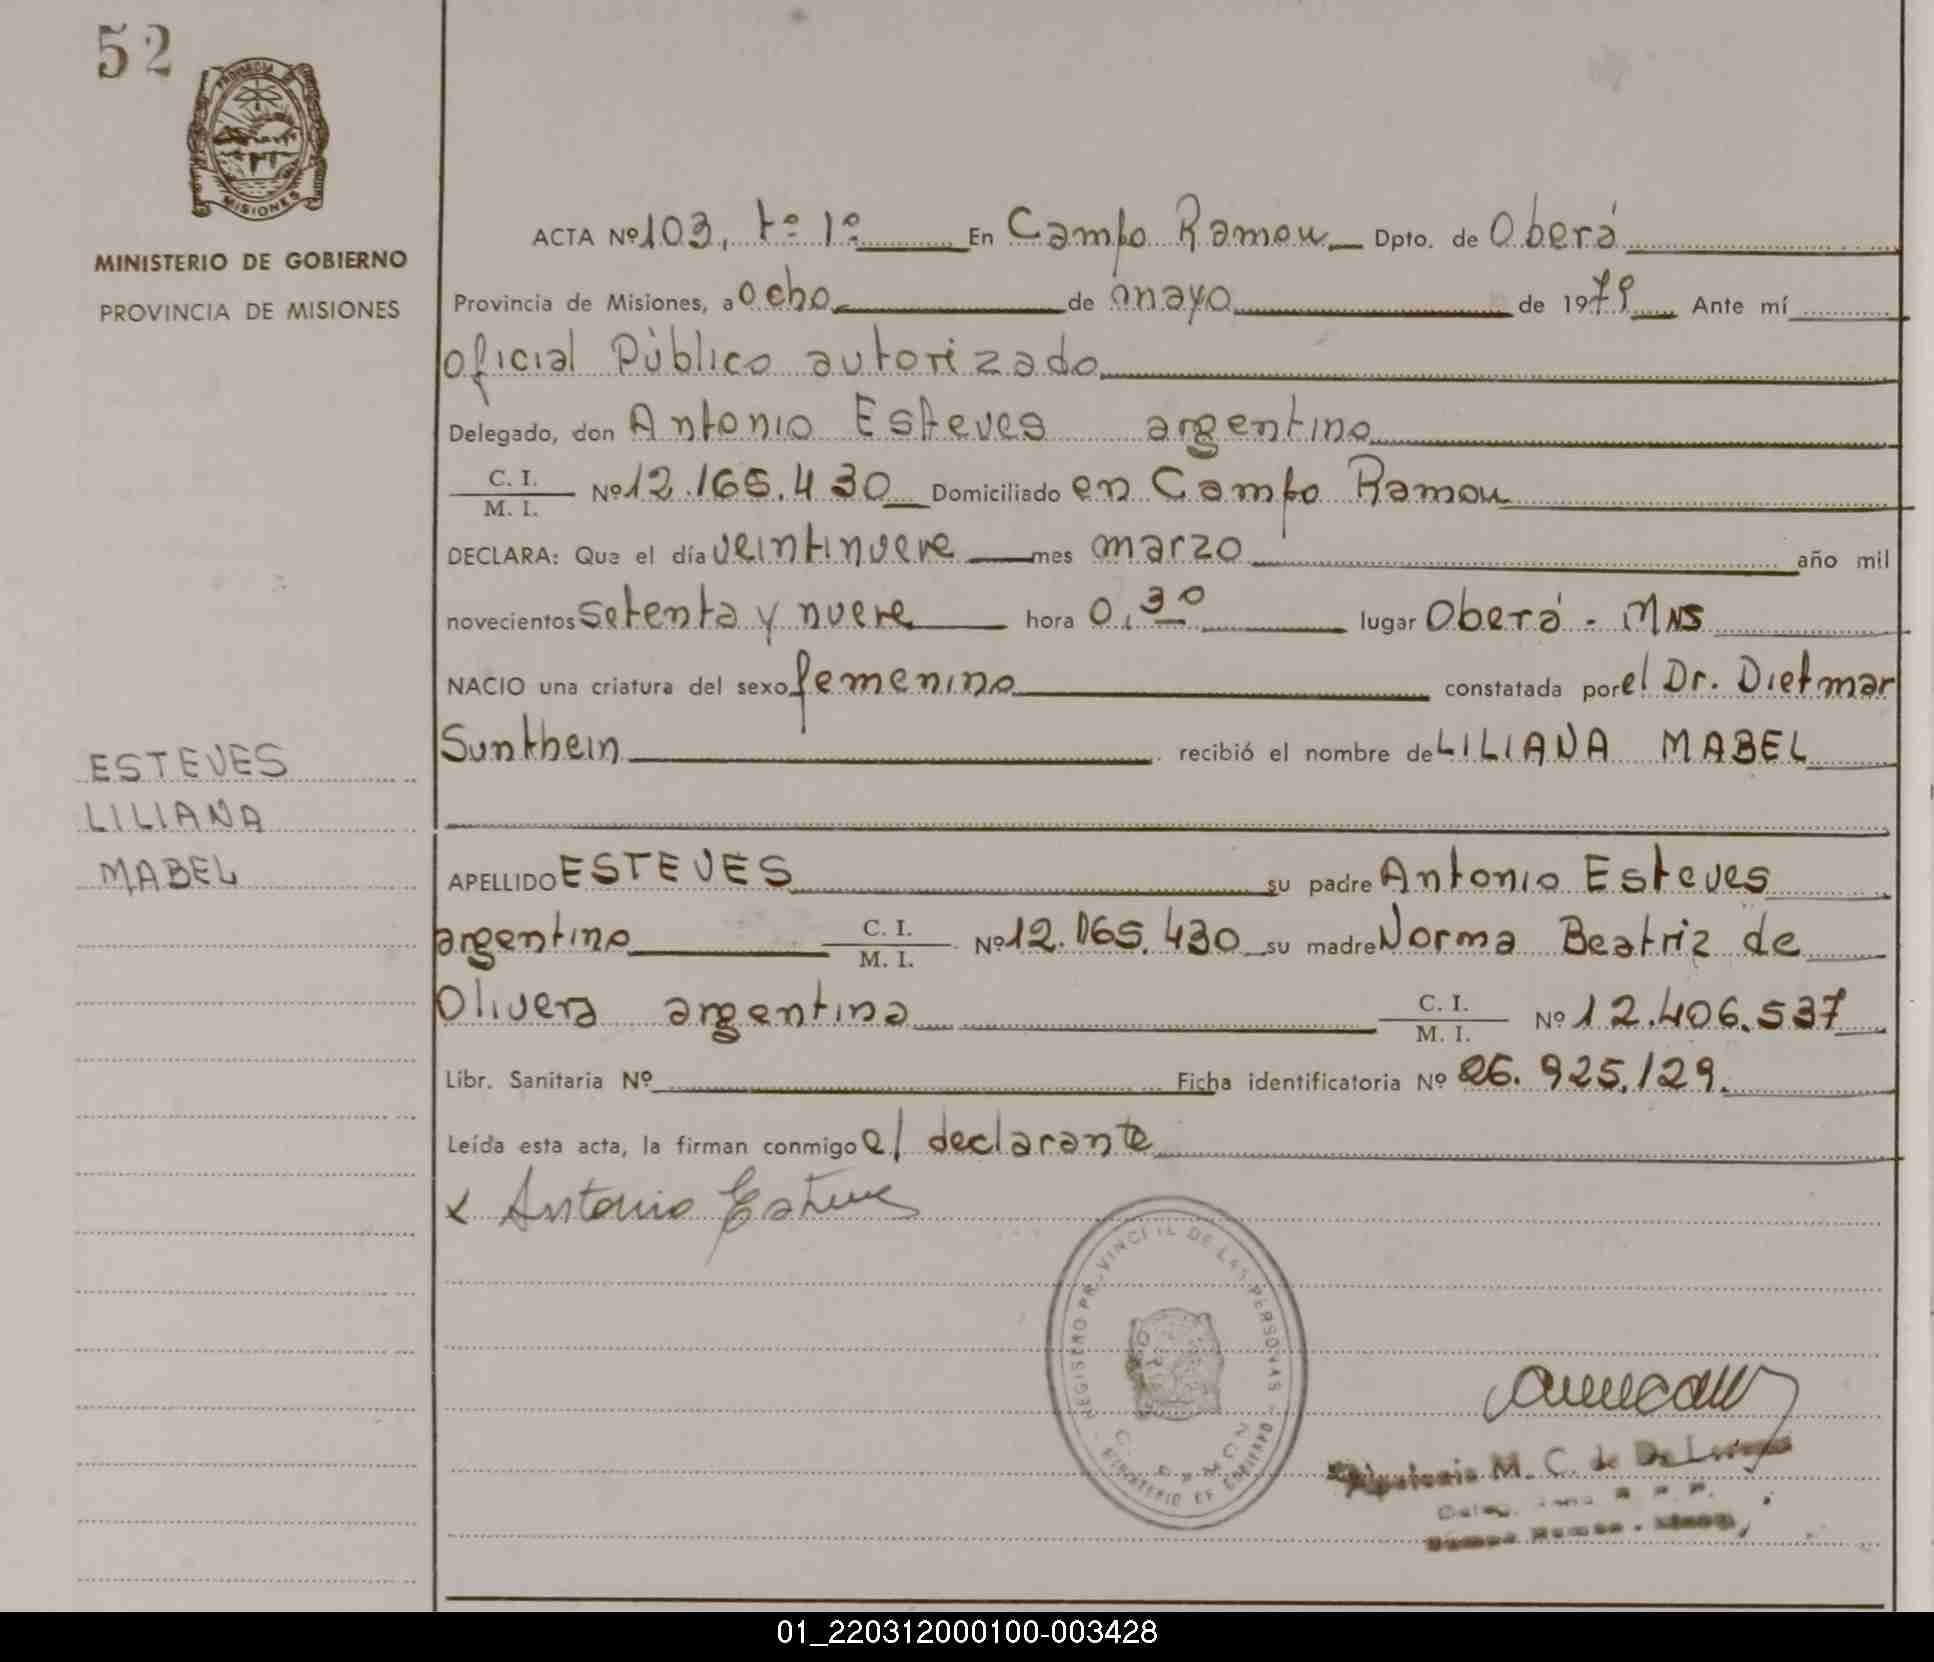 52
PROVINCIA DE
MISIONES
MINISTERIO DE GOBIERNO
PROVINCIA DE MISIONES
ACTA Nº 103, tº 1º En Campo Ramon Dpto. de Oberá
Provincia de Misiones, a ocho de mayo de 1979 Ante mí
oficial Público autorizado
Delegado, don Antonio Esteves argentino
C. I.
M. I.
Nº 12.165.430 Domiciliado en Campo Ramon
DECLARA: Que el día veintinueve mes marzo año mil
novecientos setenta y nueve hora 0,30 lugar Oberá - Mns
NACIO una criatura del sexo femenino constatada por el Dr. Dietmar
Sunkhein recibió el nombre de LILIANA MABEL
ESTEVES
LILIANA
MABEL
APELLIDO ESTEVES su padre Antonio Esteves
argentino C. I.
M. I.
Nº 12.165.430 su madre Norma Beatriz de
Olivera argentina C. I.
M. I.
Nº 12.406.537
Libr. Sanitaria Nº Ficha identificatoria Nº 26.925.129.
Leída esta acta, la firman conmigo el declarante
x Antonio Esteves
REGISTRO PROVINCIAL DE LAS PERSONAS
C. RAMON
MINISTERIO DE GOBIERNO
M. C. de
01_220312000100-003428